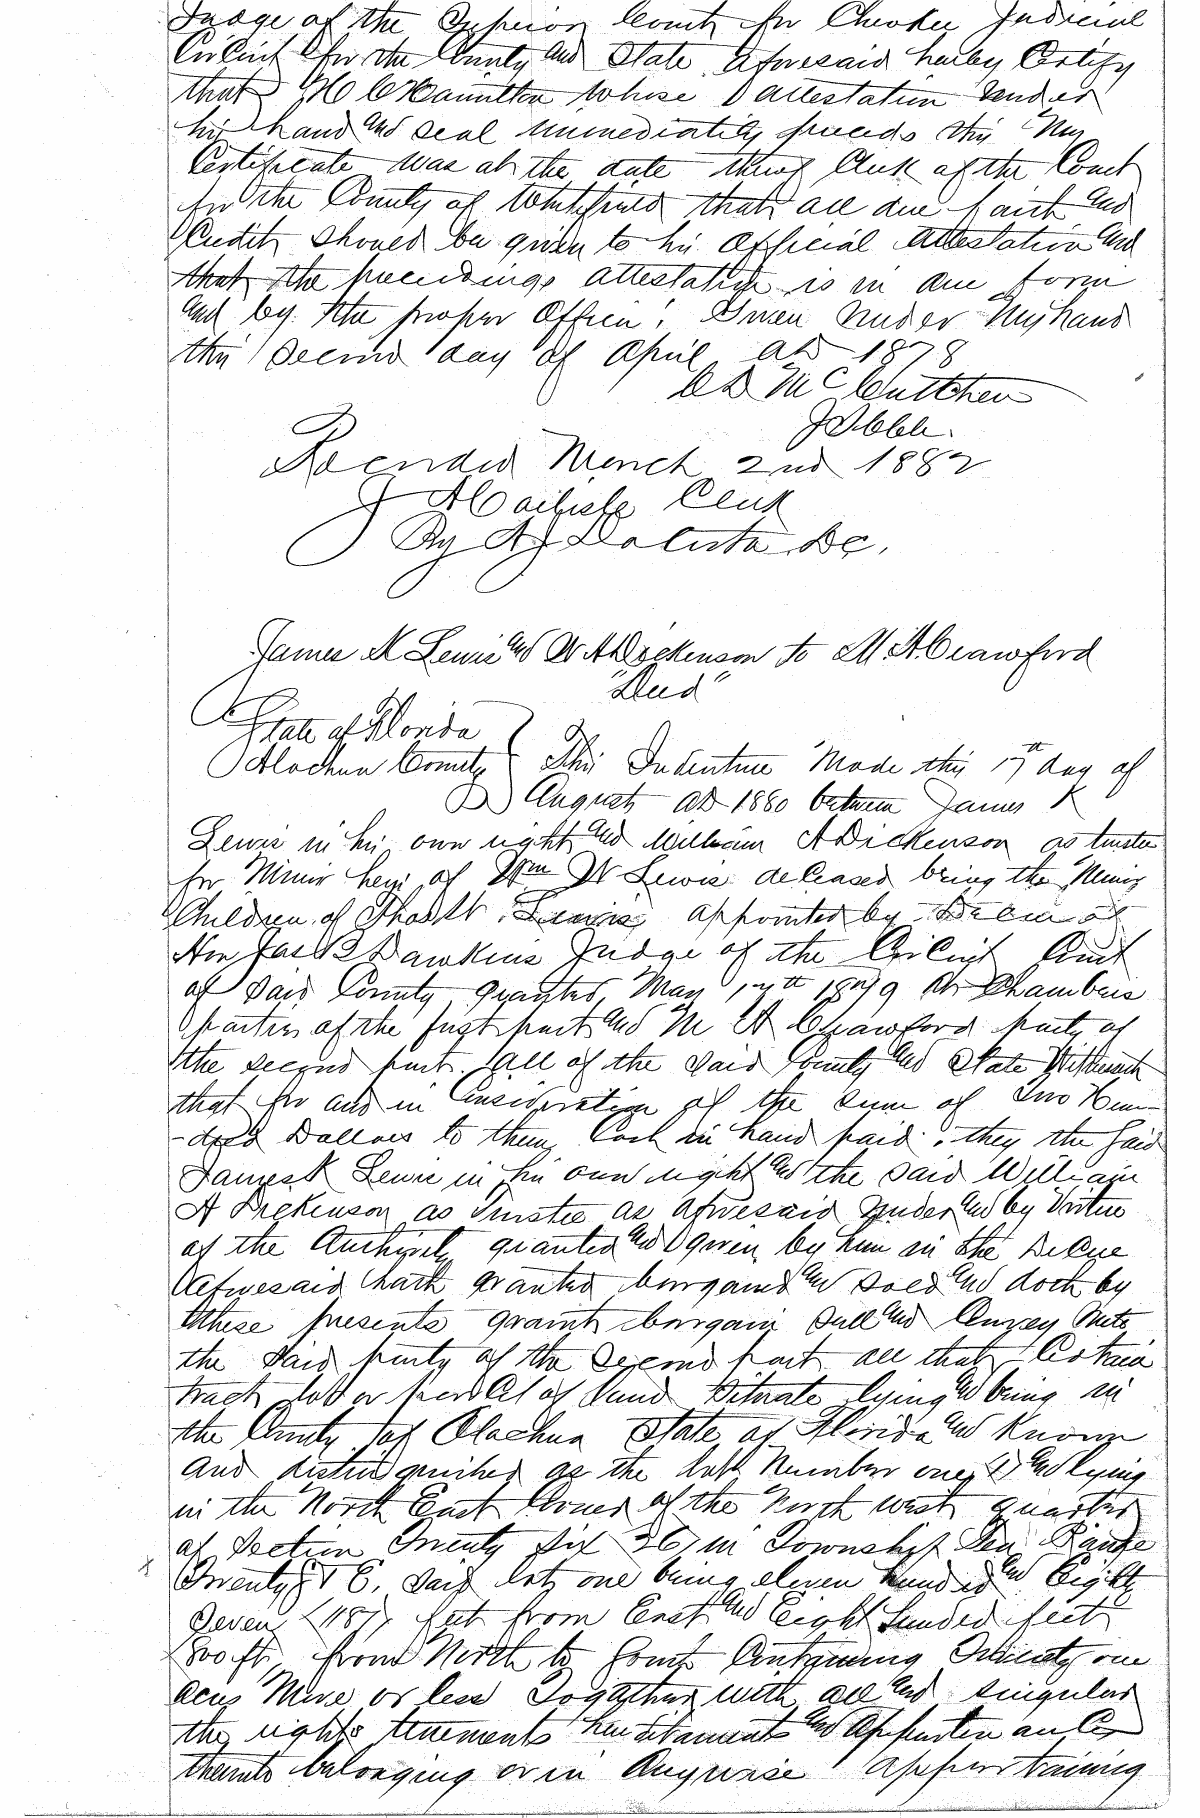 Judge of the Superior Court for Cherokee Judicial
Circuit for the County and State aforesaid hereby Certify
that H C Hamilton whose attestation under
his hand and seal immediately preceeds this my
Certificate was at the date thereof Clerk of the Court
for the County of Whitfield that all due faith and
Credit should be given to his official attestation and
that the preceedings attestation is in due form
and by the proper Officer. Given under My hand
this Second day of April AD 1878
C D McCutchen
J S C C C.
Recorded March 2nd 1882
J A Carlisle Clerk
By DC.
James K Lewis and W A Dickenson to M. A. Crawford
"Deed"
State of Florida
Alachua County This Indenture Made this 17th day of
August AD 1880 between James K
Lewis in his own right and William A Dickenson as trustee
for Minor heirs of Wm W Lewis deceased being the Minor
Children of Thos W. Lewis appointed by Decree of
Hon Jas B Dawkins Judge of the Circuit Court
of said County granted May 17th 1879 At Chambers
parties of the first part and M A Crawford party of
the second part. all of the said County and State Witnesseth
that for and in Consideration of the sum of Two Hun-
-dred Dollars to them Cash in hand paid, they the said
James K Lewis in his own right and the said William
A Dickenson as Trustee as aforesaid under and by Virtue
of the Authority granted and given by him in the Decree
aforesaid hath granted bargained and sold and doth by
these presents grant bargain sell and Convey unto
the said party of the second part all that Certain
tract lot or parcel of land Situate lying and being in
the County of Alachua State of Florida and Known
and distinguished as the lot Number one (1) and lying
in the North East Corner of the North west quarter
of Section Twenty Six 26 in Township Ten Range
Twenty E. Said lot one being eleven hundred and Eighty
Seven (1187) feet from East and Eight hundred feet
800 ft, from North to South Containing Twenty one
acres More or less Together with all and singular
the rights tenements hereditaments and appurtenances
thereunto belonging or in Anywise appertaining